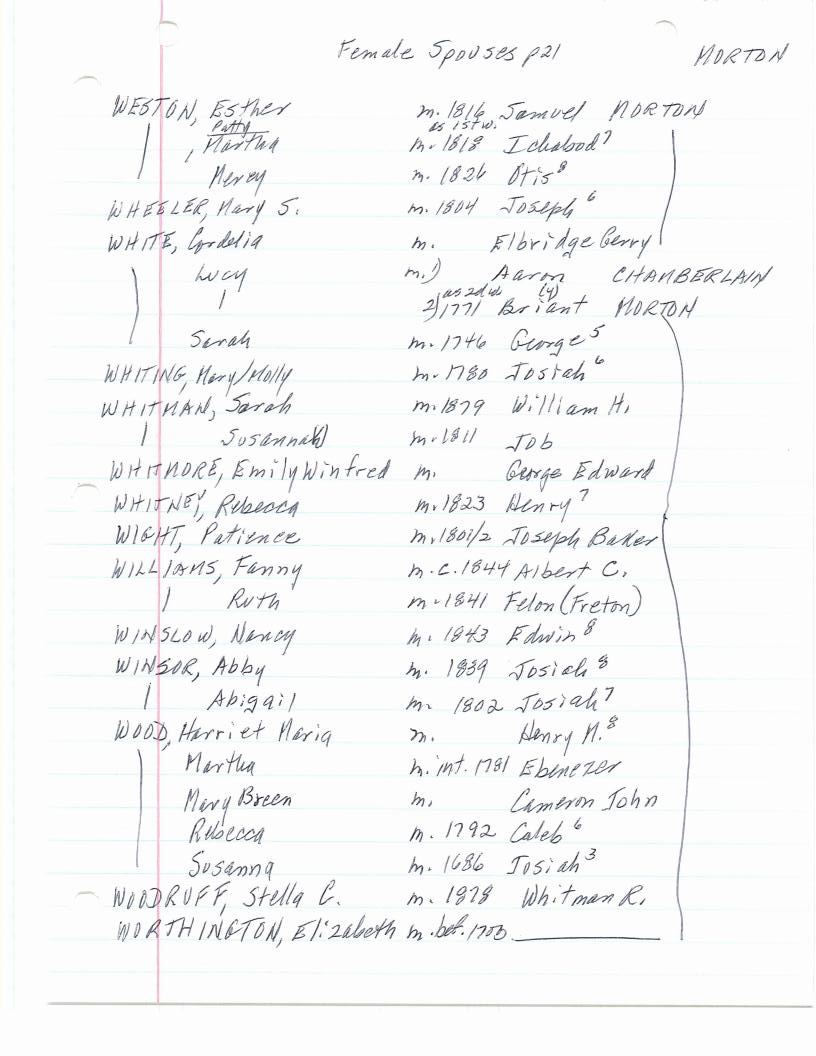 Female Spouses p21 MORTON
WESTON, Esther m. 1816 Samuel MORTON
Patty as 1st w.
, Martha m. 1818 Ichabod 7
Mercy m. 1826 Otis 8
WHEELER, Mary S. m. 1804 Joseph 6
WHITE, Cordelia m. Elbridge Gerry
Lucy m. 1) Aaron CHAMBERLAIN
as 2d w. (4)
2) 1771 Briant MORTON
Sarah m. 1746 George 5
WHITING, Mary/Molly m. 1780 Josiah 6
WHITMAN, Sarah m. 1879 William H.
Susanna(h) m. 1811 Job
WHITMORE, Emily Winfred m. George Edward
WHITNEY, Rebecca m. 1823 Henry 7
WIGHT, Patience m. 1801/2 Joseph Baker
WILLIAMS, Fanny m. c. 1844 Albert C.
Ruth m. 1841 Felon (Freton)
WINSLOW, Nancy m. 1843 Edwin 8
WINSOR, Abby m. 1839 Josiah 8
Abigail m. 1802 Josiah 7
WOOD, Harriet Maria m. Henry M. 8
Martha m. int. 1781 Ebenezer
Mary Breen m. Cameron John
Rebecca m. 1792 Caleb 6
Susanna m. 1686 Josiah 3
WOODRUFF, Stella C. m. 1878 Whitman R.
WORTHINGTON, Elizabeth m. bef.